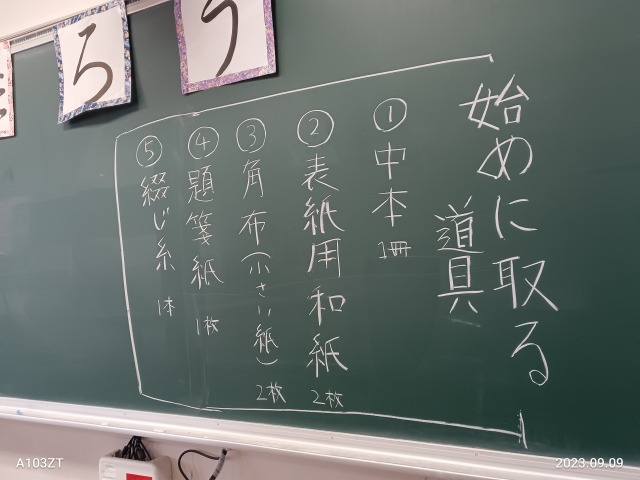 ろ
う
始めに取る
道具
① 中本 1冊
② 表紙用和紙 2枚
③ 角布(小さい紙) 2枚
④ 題箋紙 1枚
⑤ 綴じ糸 1本
A103ZT
2023.09.09